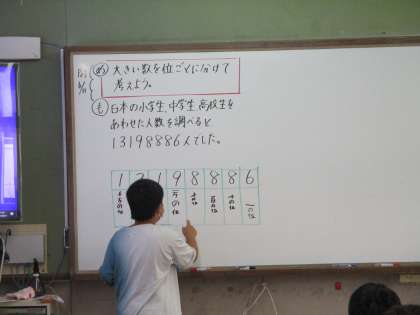 め 大きい数を位ごとに分けて
考えよう。
も 日本の小学生、中学生、高校生を
あわせた人数を調べると
13198886人でした。
1 3 1 9 8 8 8 6
千の位 百の位 十の位 一の位